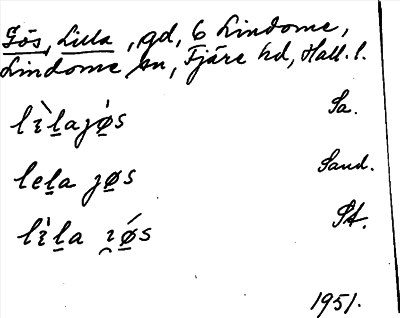 Gös, Lilla, gd, 6 Lindome,
Lindome sn, Fjäre hd, Hall. l.
lìl̲ajǿ̲s Sa.
lel̲a jø̲s Sand.
lìl̲a ı̯ǿ̲s St.
1951.